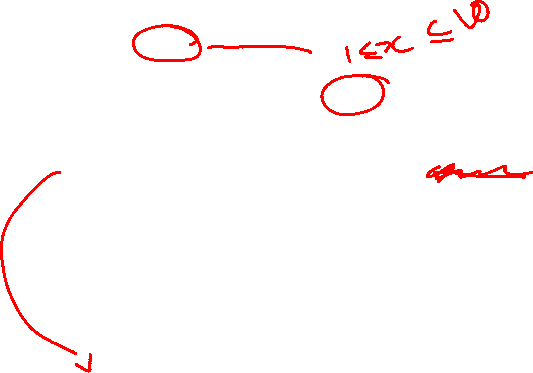 1 ≤ x ≤ 10